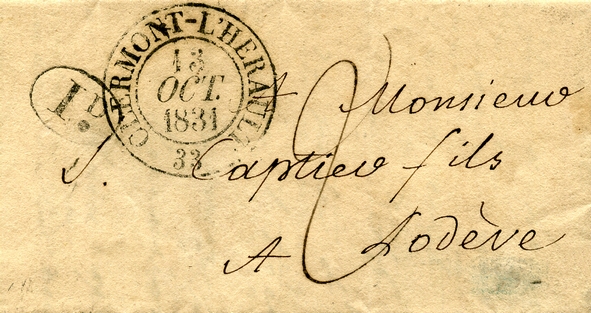 CLERMONT-L'HERAULT
13
OCT.
1831
33
1D.
2
A Monsieur
J. Captier fils
A Lodève